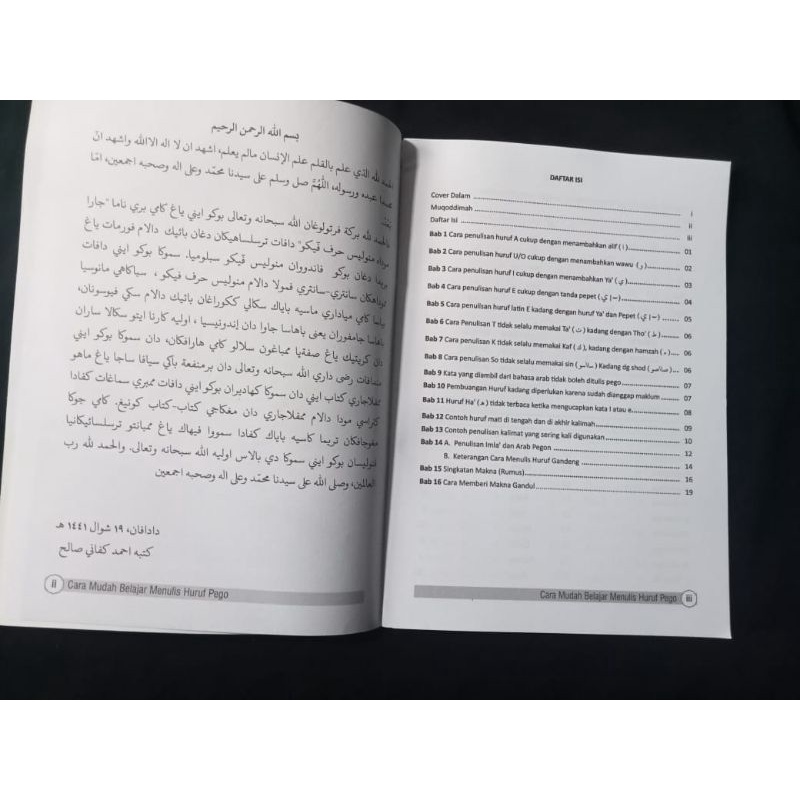 بسم الله الرحمن الرحيم
لله الذي علم بالقلم علم الإنسان مالم يعلم، اشهد ان لا اله الاالله واشهد انّ
عبده ورسوله، اللّهُمَّ صل وسلم على سيدنا محمّد وعلى اله وصحبه اجمعين، امّا
لله بركة فرتولوڠان الله سبحانه وتعالى بوكو ايني ياڠ كامي بري ناما "چارا
موداه منوليس حرف ڤيكو" دافات ترسلساهيكان دڠان بائيك دالام فورمات ياڠ
دڠان بوكو فاندووان منوليس ڤيكو سبلوميا. سموكا بوكو ايني دافات
سانتري-سانتري فمولا دالام منوليس حرف فيكو ، سباكاهي مانوسيا
كامي مياداري ماسيه باياك سكالي ككوراڠان بائيك دالام سكي فيوسونان،
باهاسا جامفوران يعنى باهاسا جاوا دان إندونيسيا ، اوليه كارنا ايتو سكالا ساران
دان كريتيك ياڠ صفتيا ممباڠون سلالو كامي هارافكان، دان سموكا بوكو ايني
رضى داري الله سبحانه وتعالى دان برمنفعة باكي سيافا ساجا ياڠ ماهو
كتاب ايني دان سموكا كهاديران بوكو ايني دافات ممبري سماڠات كفادا
مودا دالام ممفلاجاري دان مڠكاجي كتاب-كتاب كونيڠ. كامي جوكا
تريما كاسيه باياك كفادا سمووا فيهاك ياڠ ممبانتو ترسلسائيكانيا
فنوليسان بوكو ايني سموكا دي بالاس اوليه الله سبحانه وتعالى. والحمد لله رب
العالمين، وصلى الله على سيدنا محمّد وعلى اله وصحبه اجمعين
دادافان، ١٩ شوال ١٤٤١ هـ
كتبه احمد كفاني صالح
ii Cara Mudah Belajar Menulis Huruf Pego
DAFTAR ISI
Cover Dalam ........ i
Muqoddimah ........ ii
Daftar Isi ........ iii
Bab 1 Cara penulisan huruf A cukup dengan menambahkan alif ( ا ) ........ 01
Bab 2 Cara penulisan huruf U/O cukup dengan menambahkan wawu ( و ) ........ 02
Bab 3 Cara penulisan huruf I cukup dengan menambahkan Ya' ( ي ) ........ 03
Bab 4 Cara penulisan huruf E cukup dengan tanda pepet ........ 04
Bab 5 Cara penulisan huruf latin E kadang dengan huruf Ya' dan Pepet ........ 05
Bab 6 Cara Penulisan T tidak selalu memakai Ta' ( ت ) kadang dengan Tho' ( ط ) ........ 06
Bab 7 Cara penulisan K tidak selalu memakai Kaf ( ك ), kadang dengan hamzah ( ء ) ........ 06
Bab 8 Cara penulisan So tidak selalu memakai sin Kadang dg shod ........ 06
Bab 9 Kata yang diambil dari bahasa arab tidak boleh ditulis pego ........ 07
Bab 10 Pembuangan Huruf kadang diperlukan karena sudah dianggap maklum ........ 07
Bab 11 Huruf Ha' ( ه ) tidak terbaca ketika mengucapkan kata I atau e ........ 08
Bab 12 Contoh huruf mati di tengah dan di akhir kalimah ........ 09
Bab 13 Contoh penulisan kalimat yang sering kali digunakan ........ 10
Bab 14 A. Penulisan Imla' dan Arab Pegon ........ 12
B. Keterangan Cara Menulis Huruf Gandeng ........ 14
Bab 15 Singkatan Makna (Rumus) ........ 16
Bab 16 Cara Memberi Makna Gandul ........ 19
Cara Mudah Belajar Menulis Huruf Pego iii